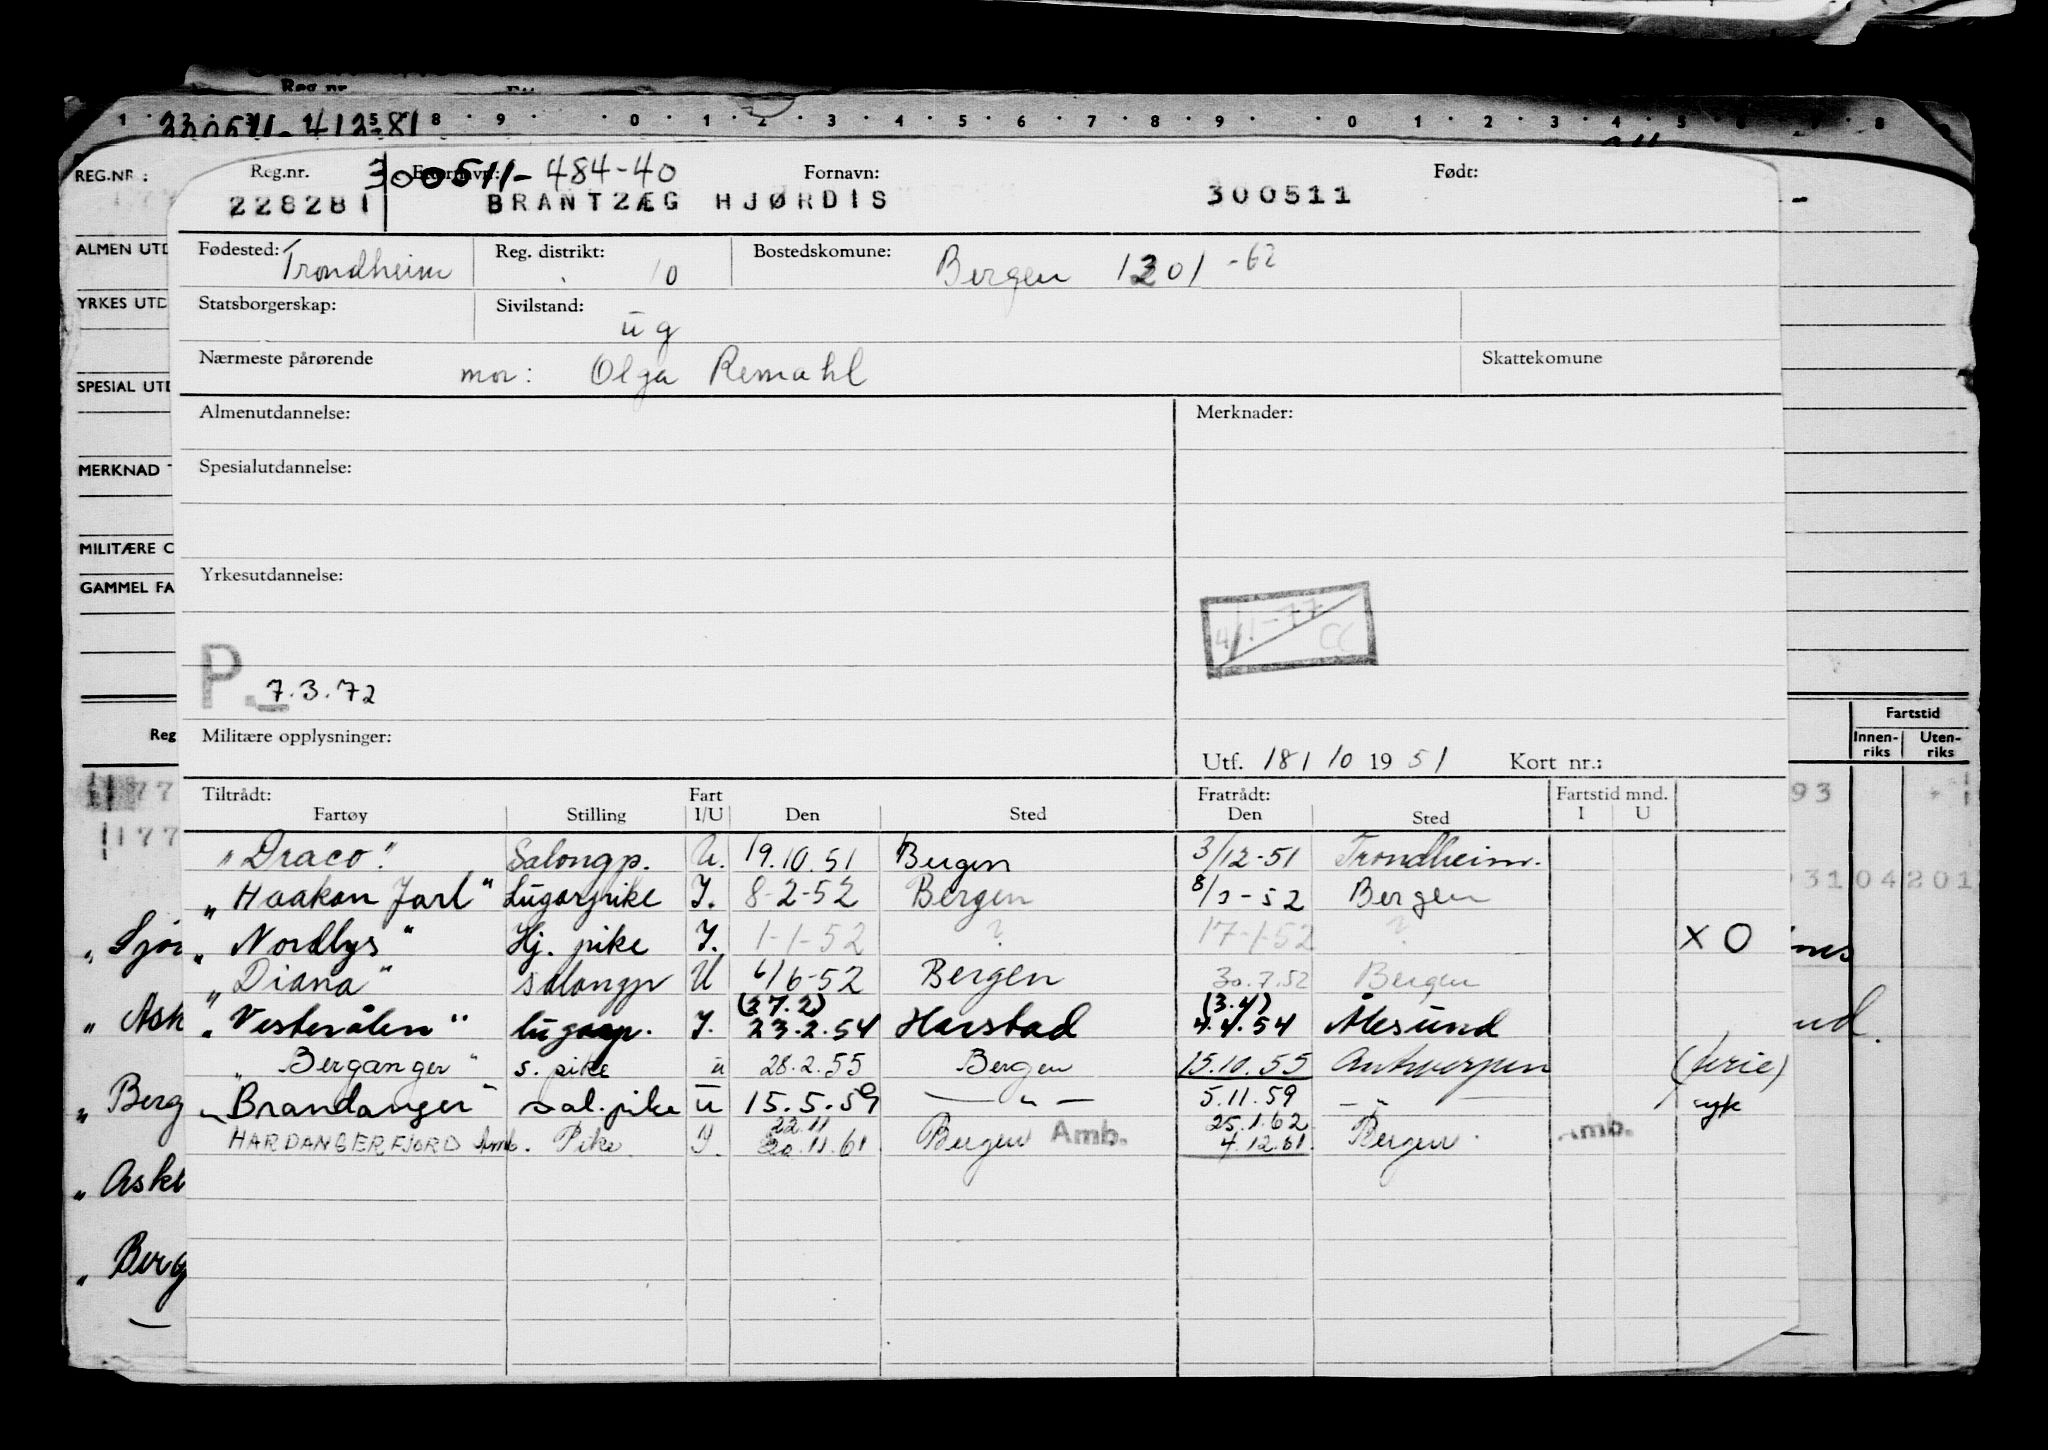 Reg.nr.
1 2 3 4 5 8 9 0 1 2 3 4 5 6 7 8 9 0 1 2 3 4 5 6 7 8
REG.NR.: Reg.nr. 300511-484-40 Fornavn: Født:
228281 BRANTZÆG HJØRDIS 300511
ALMEN UTD Fødested: Trondheim Reg. distrikt: 10 Bostedskomune: Bergen 1301 -62
YRKES UTD Statsborgerskap: Sivilstand: ug
Nærmeste pårørende mor: Olga Remahl Skattekomune
SPESIAL UTD Almenutdannelse: Merknader:
MERKNAD Spesialutdannelse:
MILITÆRE
GAMMEL FA Yrkesutdannelse:
4/1-77
P. 7.3.72
Reg Militære opplysninger: Fartstid
Utf. 18/10 1951 Kort nr.: Innen-riks Uten-riks
Tiltrådt: Fart Fratrådt: Fartstid mnd.
Fartøy Stilling I/U Den Sted Den Sted I U
"Draco" Salongp. U. 19.10.51 Bergen 3/12-51 Trondheim.
"Haakon Jarl" Lugarpike I. 8-2-52 Bergen 8/3-52 Bergen
"Nordlys" Hj. pike I. 1-1-52 ? 17-1-52 ? X O
"Diana" salongp U 6/6-52 Bergen 30.7.52 Bergen
(27.2) (3.4)
"Vesterålen" lugarp. I. 23.2.54 Harstad 4.4.54 Ålesund
"Berganger" s. pike u 28.2.55 Bergen 15.10.55 Antwerpen (ferie)
"Brandanger" sal.pike u 15.5.59 — " — 5.11.59 — " — syk
22.11 25.1.62
HARDANGERFJORD Amb. Pike I. 20.11.61 Bergen Amb. 4.12.61 Bergen Amb.
"Berg
"Berg